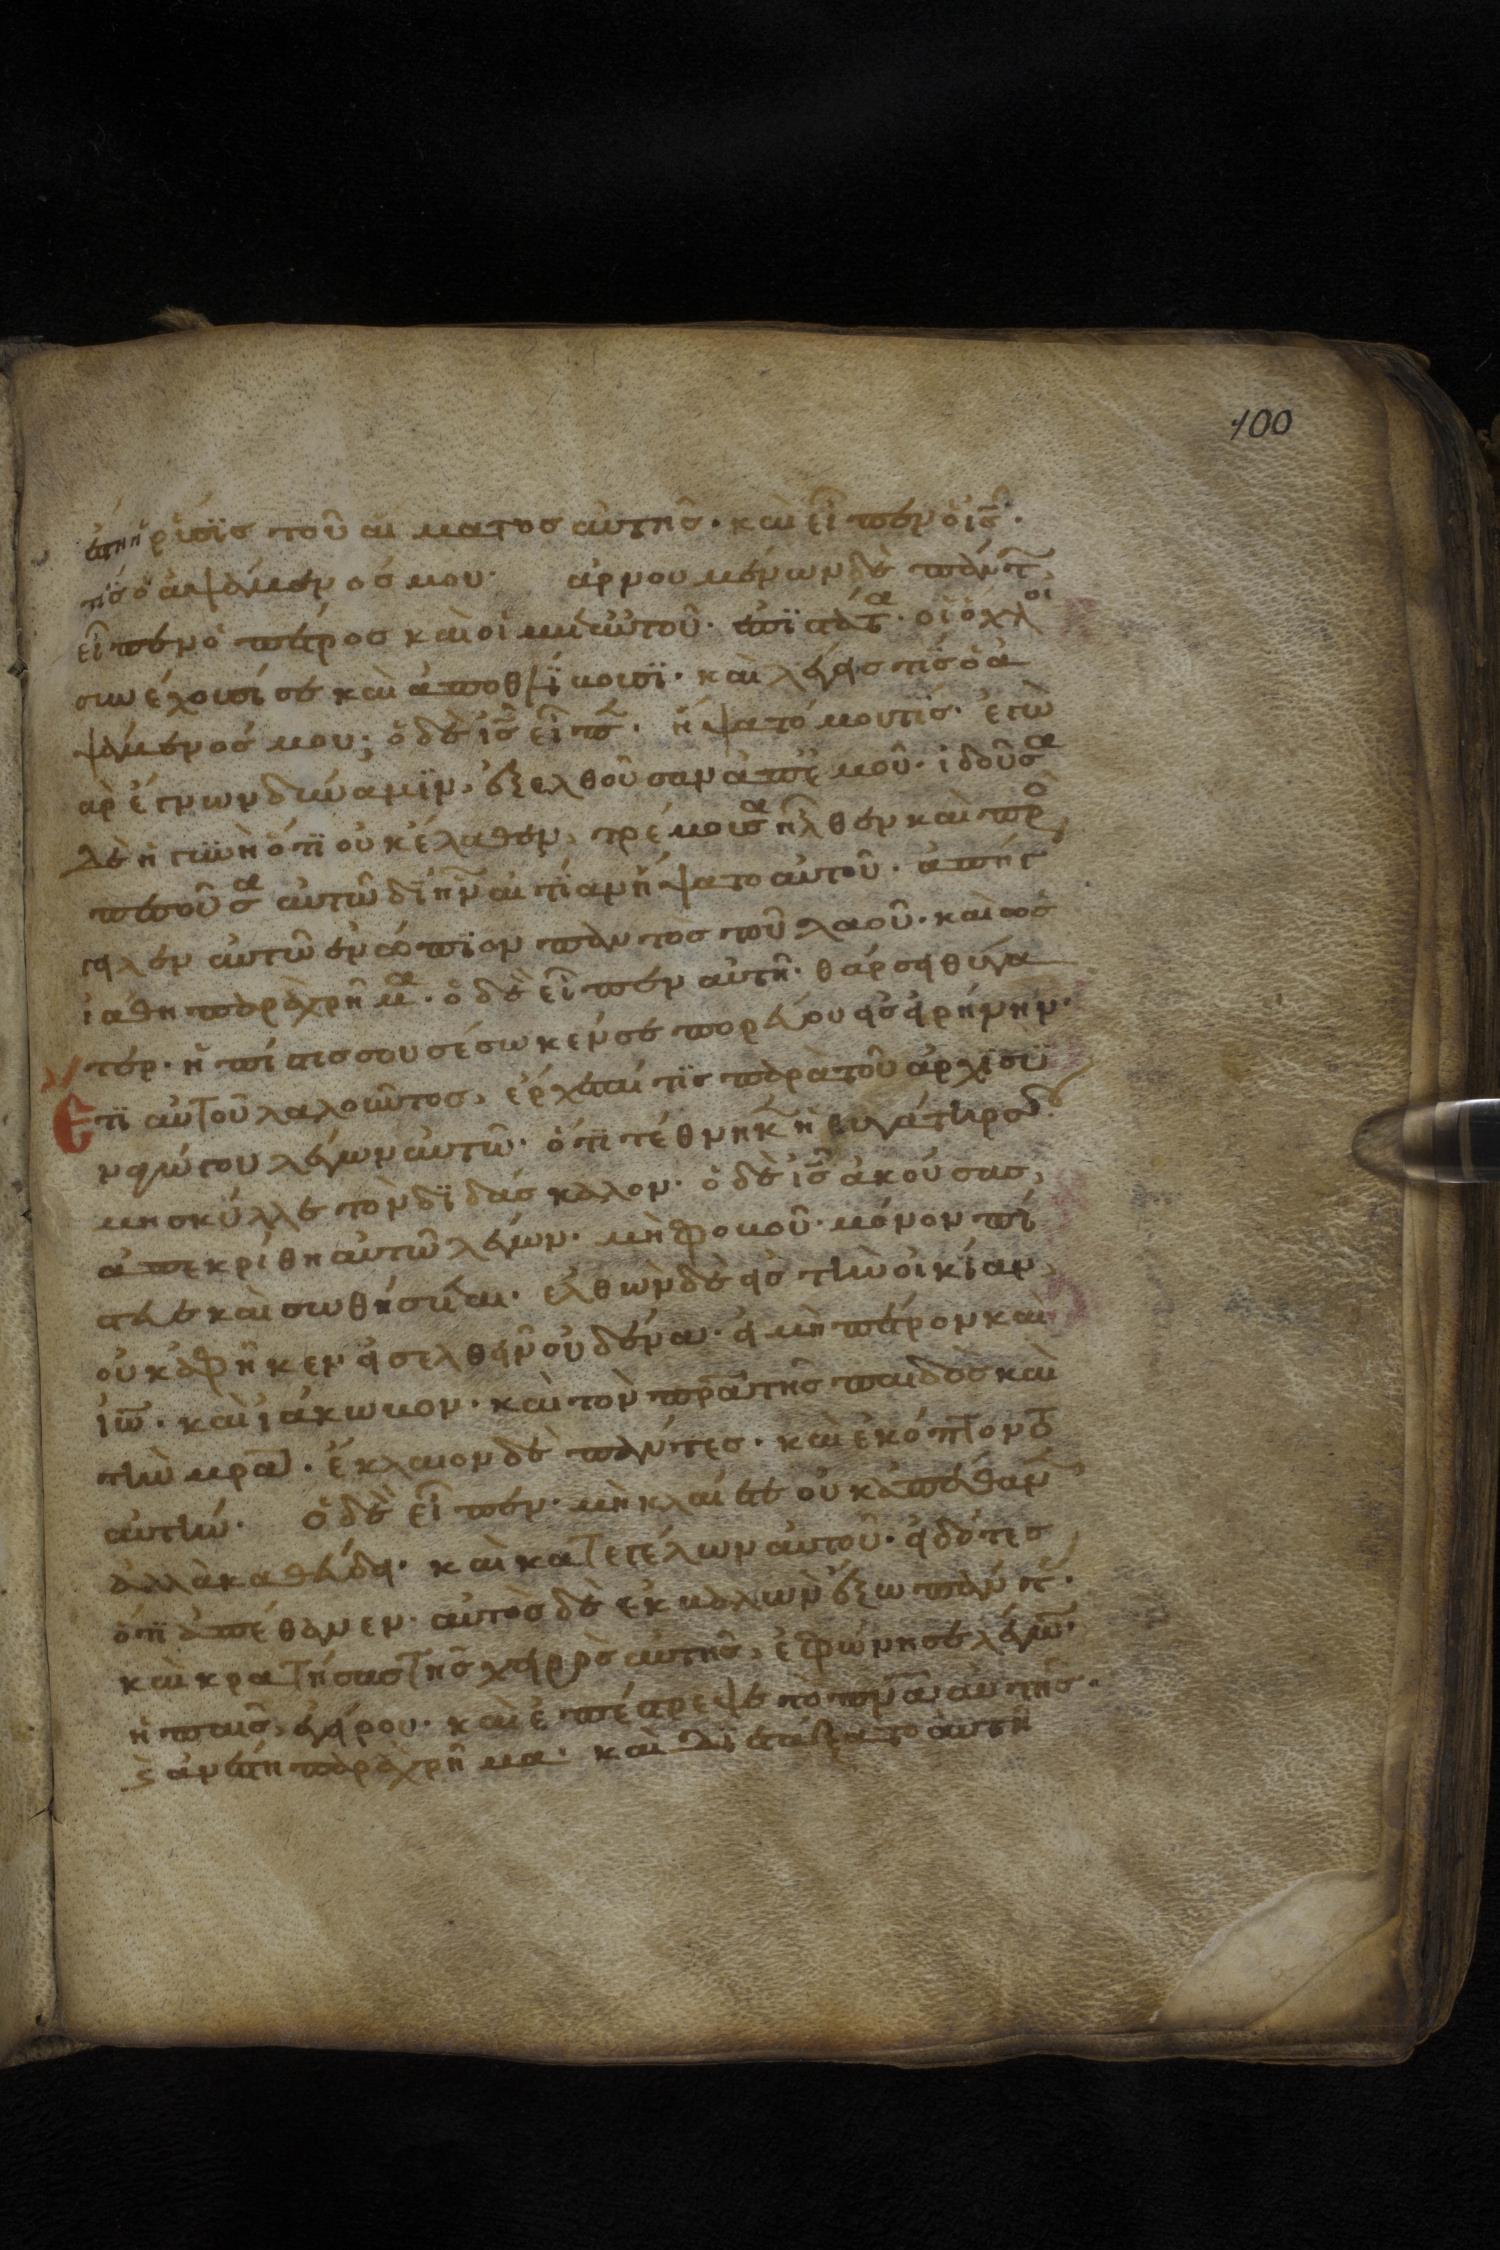 100
ἔστη ἡ ῥύσϊς τοῦ αἵματος αὐτῆς· καὶ εἶπεν ὁ ις·
τίς ὁ ἁψάμενός μου· ἀρνουμένων δὲ πάντ
εἶπεν ὁ πέτρος καὶ οἱ μετ αὐτοῦ· ἐπϊστάτα· οἱ ὄχλοι
συνέχουσί σε καὶ ἀποθλίβουσϊ· καὶ λέγεις τίς ὁ ἁ
ψάμενός μου; ὁ δὲ ις εἶπε· ἥψατό μου τίς· ἐγὼ
γὰρ ἔγνων δύναμϊν, ἐξελθοῦσαν ἀπ ἐμοῦ· ἰδοῦσα
δὲ ἡ γυνὴ ὅτϊ οὐκ ἔλαθεν, τρέμουσα ἦλθεν καὶ προ
πεσοῦσα αὐτῶ δϊ ἣν αἰτίαν ἥψατο αὐτοῦ· ἀπήγ
γειλεν αὐτῶ ἐνώπϊον παντὸς τοῦ λαοῦ· καὶ ὡς
ἰάθη παραχρῆμα· ὁ δὲ εἶπεν αὐτῆ· θάρσει θύγα
τερ· ἡ πίστις σου σέσωκεν σε πορεύου εἰς εἰρήνην·
Ετϊ αὐτοῦ λαλοῦντος, ἔρχεταί τϊς παρὰ τοῦ ἀρχϊσυ
ναγώγου λέγων αὐτῶ· ὅτϊ τέθνηκ ἡ θυγάτηρ σου·
μὴ σκύλλε τὸν δϊδάσκαλον· ὁ δὲ ις ἀκούσας,
ἀπεκρίθη αὐτῶ λέγων· μὴ φοβοῦ· μόνον πί
στευε καὶ σωθήσεται· ἐλθὼν δὲ εἰς τὴν οἰκίαν,
οὐκ ἀφῆκεν εἰσελθεῖν οὐδένα· εἰ μὴ πέτρον καὶ
ιω· καὶ ἰάκωβον· καὶ τὸν πρα τῆς παιδὸς καὶ
τὴν μρα· ἔκλαιον δὲ πάντες· καὶ ἐκόπτοντο
αὐτήν· ὁ δὲ εἶπεν· μὴ κλαίετε οὐκ ἀπέθαν
ἀλλὰ καθεύδει· καὶ κατεγέλων αὐτοῦ· εἰδότες
ὅτϊ ἀπέθανεν· αὐτὸς δὲ ἐκβαλὼν ἔξω πάντ·
καὶ κρατήσας τῆς χειρὸς αὐτῆς, ἐφώνησε λέγω·
ἡ παῖς, ἐγείρου· καὶ ἐπέστρεψε τὸ πνα αὐτῆς·
ϛ ἀνέστη παραχρῆμα· καὶ δϊέταξατο αὐτῆ